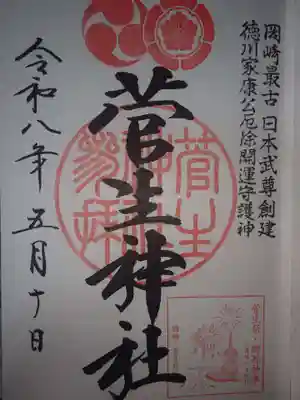 岡崎最古 日本武尊創建
徳川家康公厄除開運守護神
菅生神社
令和八年 五月十日